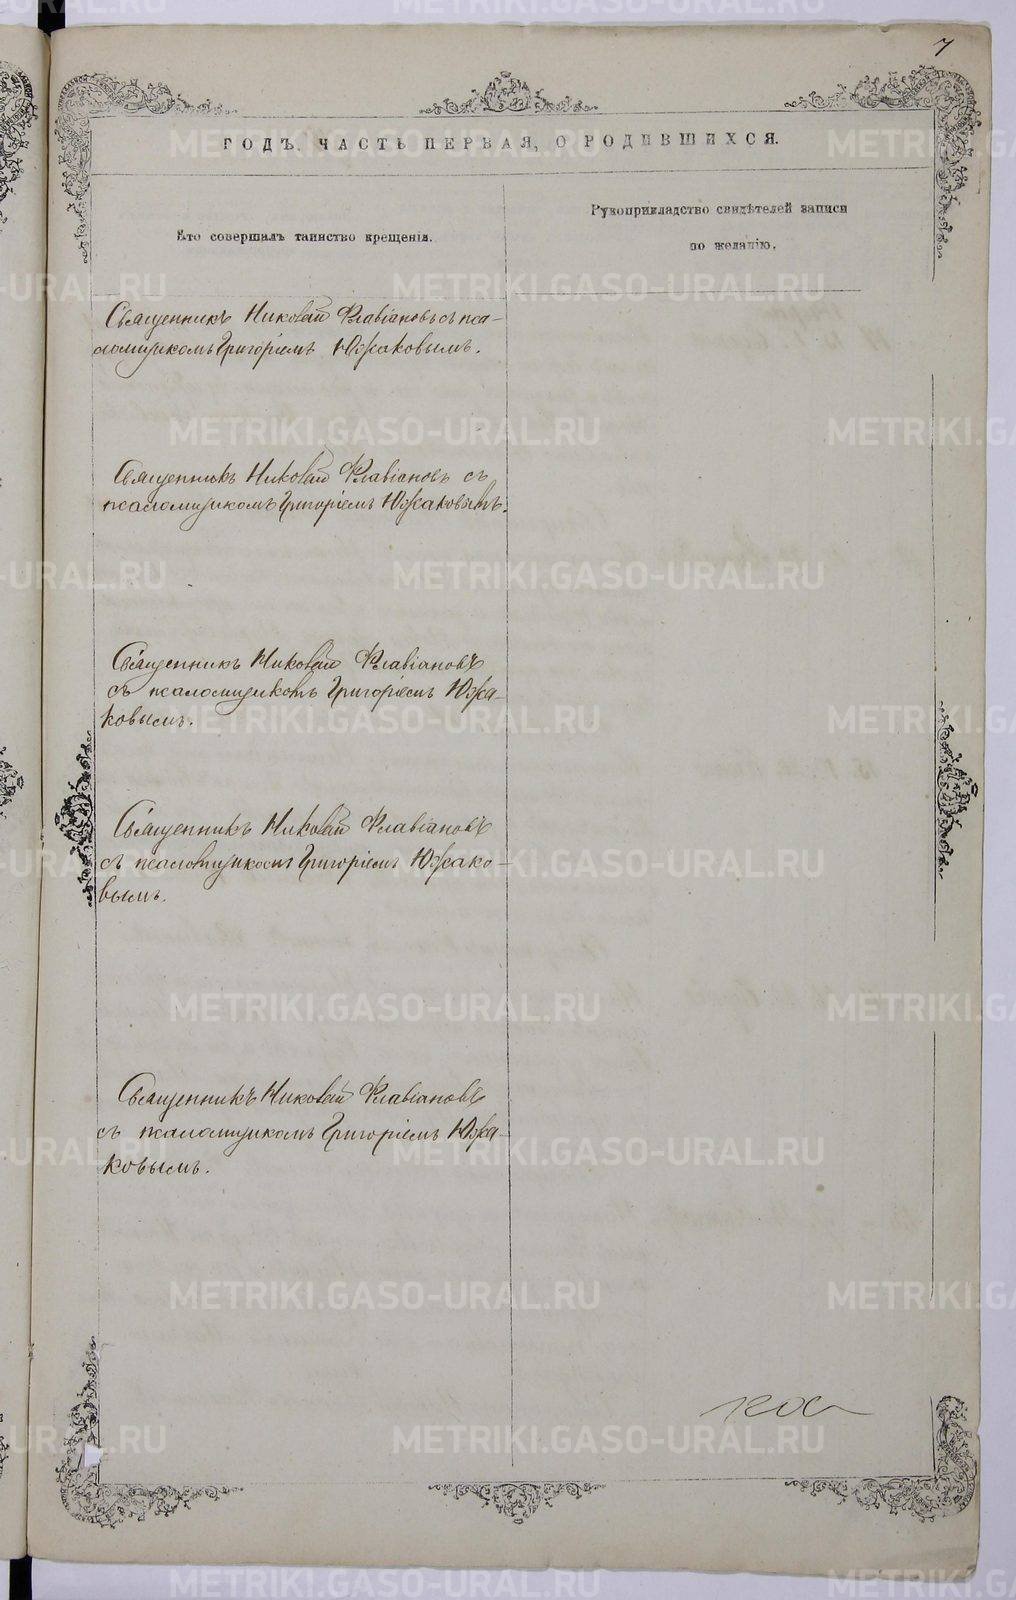 7
ГОДЪ. ЧАСТЬ ПЕРВАЯ, О РОДИВШИХСЯ.
Кто совершалъ таинство крещенія.
Рукоприкладство свидѣтелей записи
по желанію.
Священникъ Николай Флавіановъ съ пса-
ломщикомъ Григоріемъ Южаковымъ.
Священникъ Николай Флавіановъ съ
псаломщикомъ Григоріемъ Южаковымъ.
Священникъ Николай Флавіановъ
съ псаломщикомъ Григоріемъ Южа-
ковымъ.
Священникъ Николай Флавіановъ
съ псаломщикомъ Григоріемъ Южако-
вымъ.
Священникъ Николай Флавіановъ
съ псаломщикомъ Григоріемъ Южа-
ковымъ.
METRIKI.GASO-URAL.RU